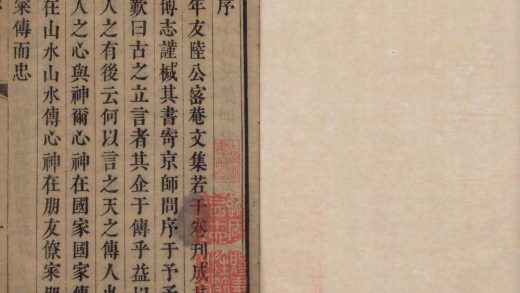 序
年友陸公宻菴文集若干卷刋成其
博志謹緘其書寄京師問序于予予
歎曰古之立言者其企于傳乎益以
人之有後云何以言之天之傳人也
人之心與神爾心神在國家國家傳
在山水山水傳心神在朋友僚寀朋
寀傳而忠